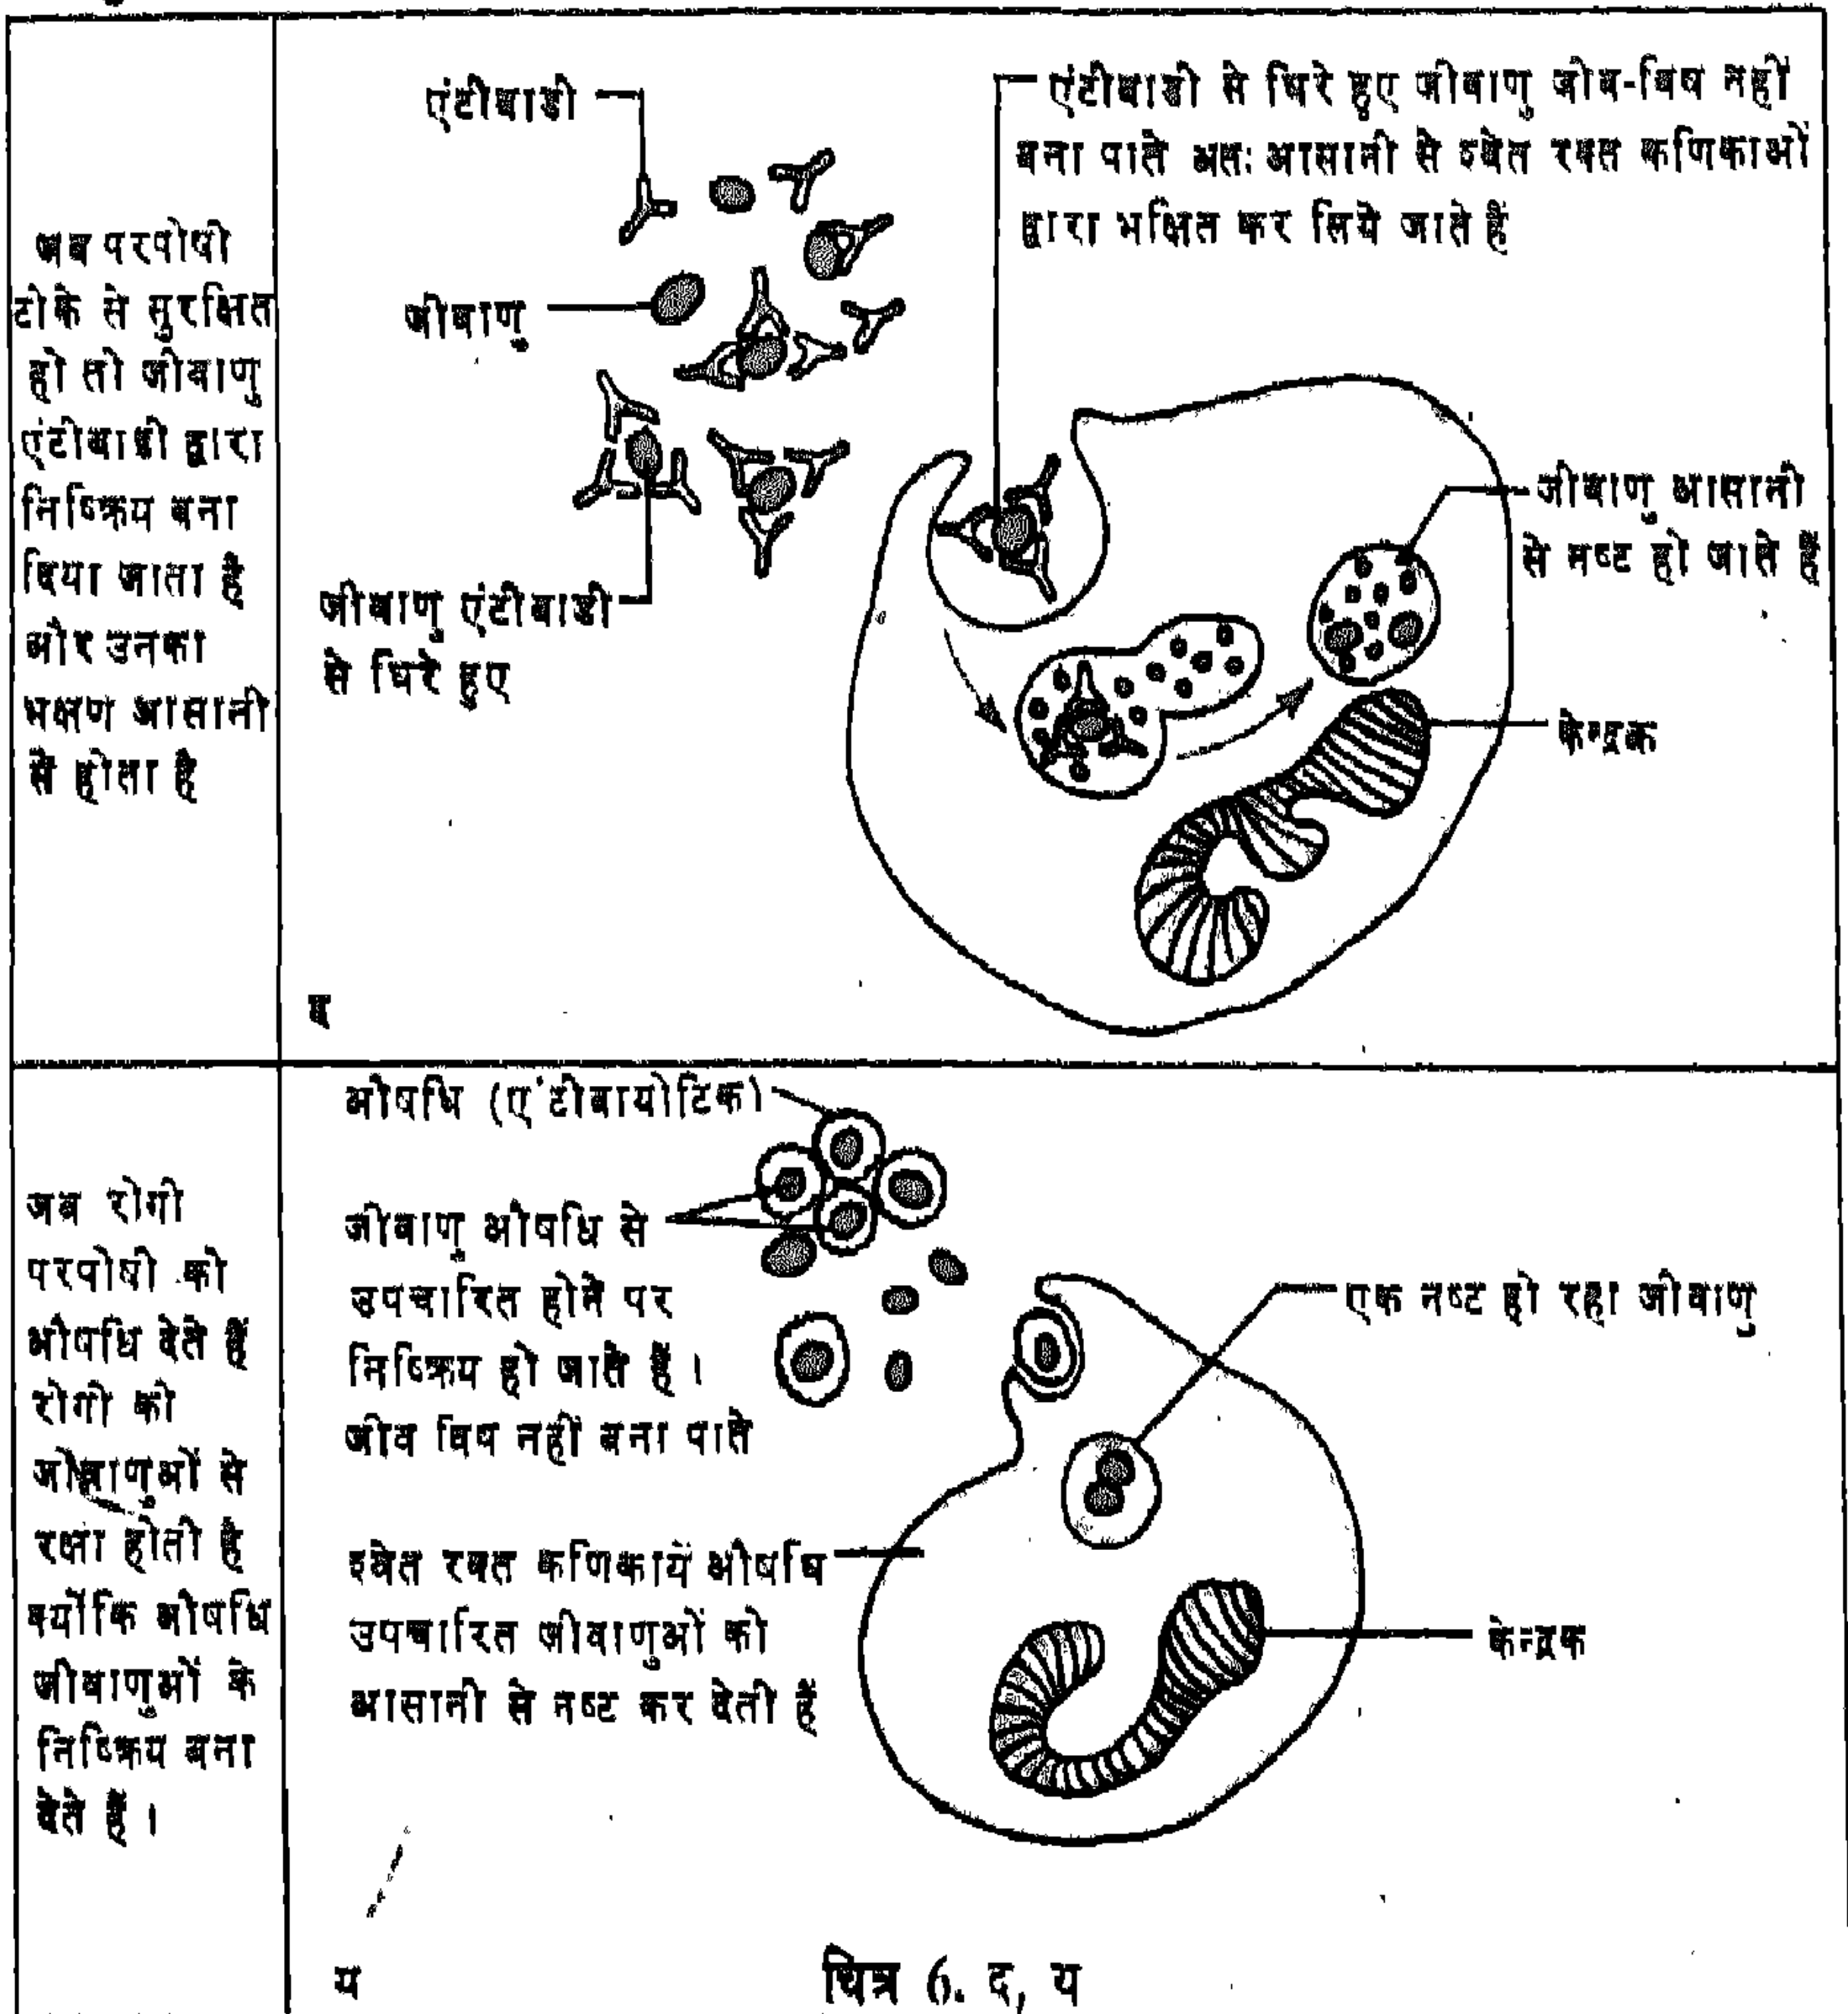 जब परपोषी
टीके से सुरक्षित
हो तो जीवाणु
एंटीबाडी द्वारा
निष्क्रिय बना
दिया जाता है
और उनका
भक्षण आसानी
से होता है
एंटीबाडी
एंटीबाडी से घिरे हुए जीवाणु जीव-विष नहीं
बना पाते अतः आसानी से श्वेत रक्त कणिकाओं
द्वारा भक्षित कर लिये जाते हैं
जीवाणु
जीवाणु आसानी
से नष्ट हो जाते हैं
जीवाणु एंटीबाडी
से घिरे हुए
केन्द्रक
द
जब रोगी
परपोषी को
औषधि देते हैं
रोगी को
जीवाणुओं से
रक्षा होती है
क्योंकि औषधि
जीवाणुओं के
निष्क्रिय बना
देते हैं ।
औषधि (एंटीबायोटिक)
जीवाणु औषधि से
उपचारित होने पर
निष्क्रिय हो जाते हैं ।
जीव विष नहीं बना पाते
एक नष्ट हो रहा जीवाणु
श्वेत रक्त कणिकायें औषधि
उपचारित जीवाणुओं को
आसानी से नष्ट कर देती हैं
केन्द्रक
य
चित्र 6. द, य